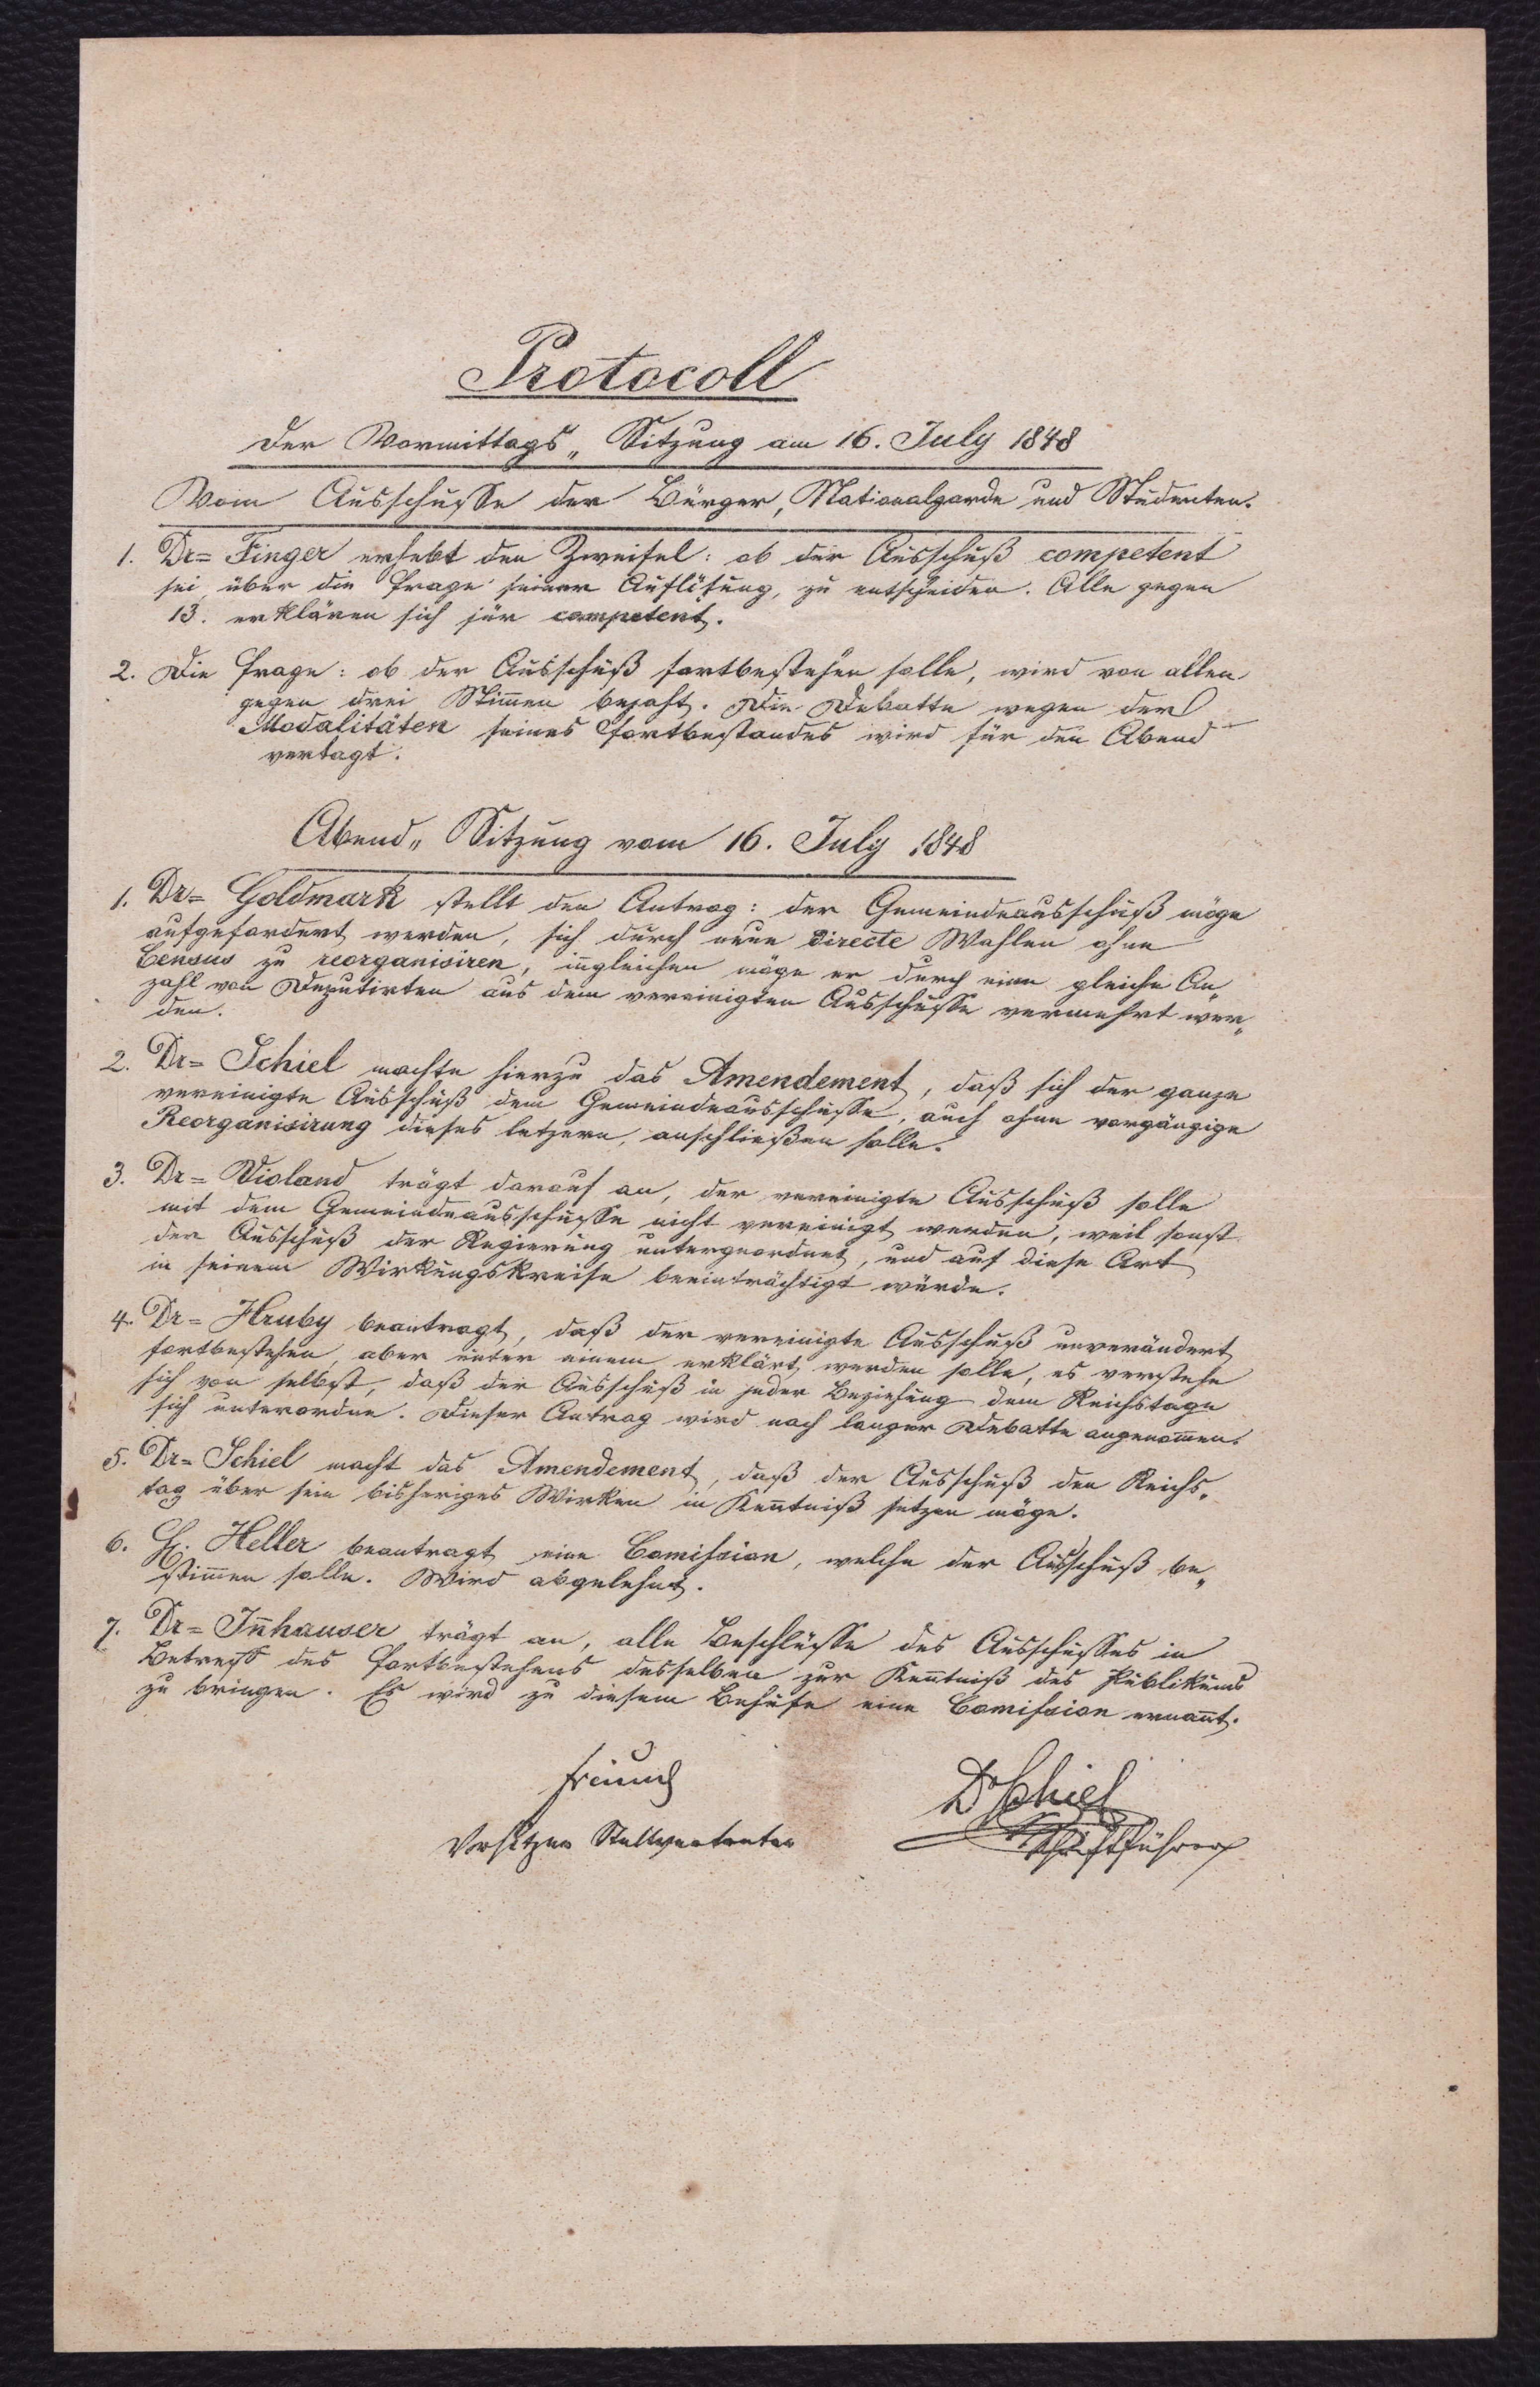 Protocoll
Der Vormittags„ Sitzung am 16. July 1848
Vom Ausschusse der Bürger, Nationalgarde und Studenten.
1. Dr= Finger erhebt den Zweifel: ob der Ausschuß competent
sei, über die Frage seiner Auflösung, zu entscheiden. Alle gegen
13. erklären sich für competent.
2. Die Frage: ob der Ausschuß fortbestehen solle, wird von allen
gegen drei Stim̅en bejaht. Die Debatte wegen der
Modalitäten seines Fortbestandes wird für den Abend
vertagt.
Abend„ Sitzung vom 16. July 1848
1. Dr= Goldmark stellt den Antrag: der Gemeindeausschuß möge
aufgefordert werden, sich durch neue directe Wahlen ohne
Census zu reorganisiren, ingleichen möge er durch eine gleiche An„
zahl von Deputirten aus dem vereinigten Ausschusse vermehrt wer„
den.
2. Dr= Schiel machte hierzu das Amendement, daß sich der ganze
vereinigte Ausschuß dem Gemeindeausschusse, auch ohne vorgängige
Reorganisirung dieses letzern, anschließen solle.
3. Dr= Violand trägt darauf an, der vereinigte Ausschuß solle
mit dem Gemeindeausschusse nicht vereinigt werden, weil sonst
der Ausschuß der Regierung untergeordnet, und auf diese Art
in seinem Wirkungskreise beeinträchtigt würde.
4. Dr= Hruby beantragt, daß der vereinigte Ausschuß unverändert
fortbestehen, aber unter einem erklärt werden solle, es verstehe
sich von selbst, daß der Ausschuß in jeder Beziehung dem Reichstage
sich unterordne. Dieser Antrag wird nach langer Debatte angenom̅en.
5. Dr= Schiel macht das Amendement, daß der Ausschuß den Reichs„
tag über sein bisheriges Wirken in Ken̅tniß setzen möge.
6. H. Heller beantragt eine Com̅ission, welche der Ausschuß be„
stim̅en solle. Wird abgelehnt.
7. Dr= In̅hauser trägt an, alle Beschlüsse des Ausschusses in
Betreff des Fortbestehens desselben zur Ken̅tniß des Publikums
zu bringen. Es wird zu diesem Behufe eine Com̅ission ernan̅t.
Dr Schiel
Vorsitzer Stellvertreter
Schriftführer